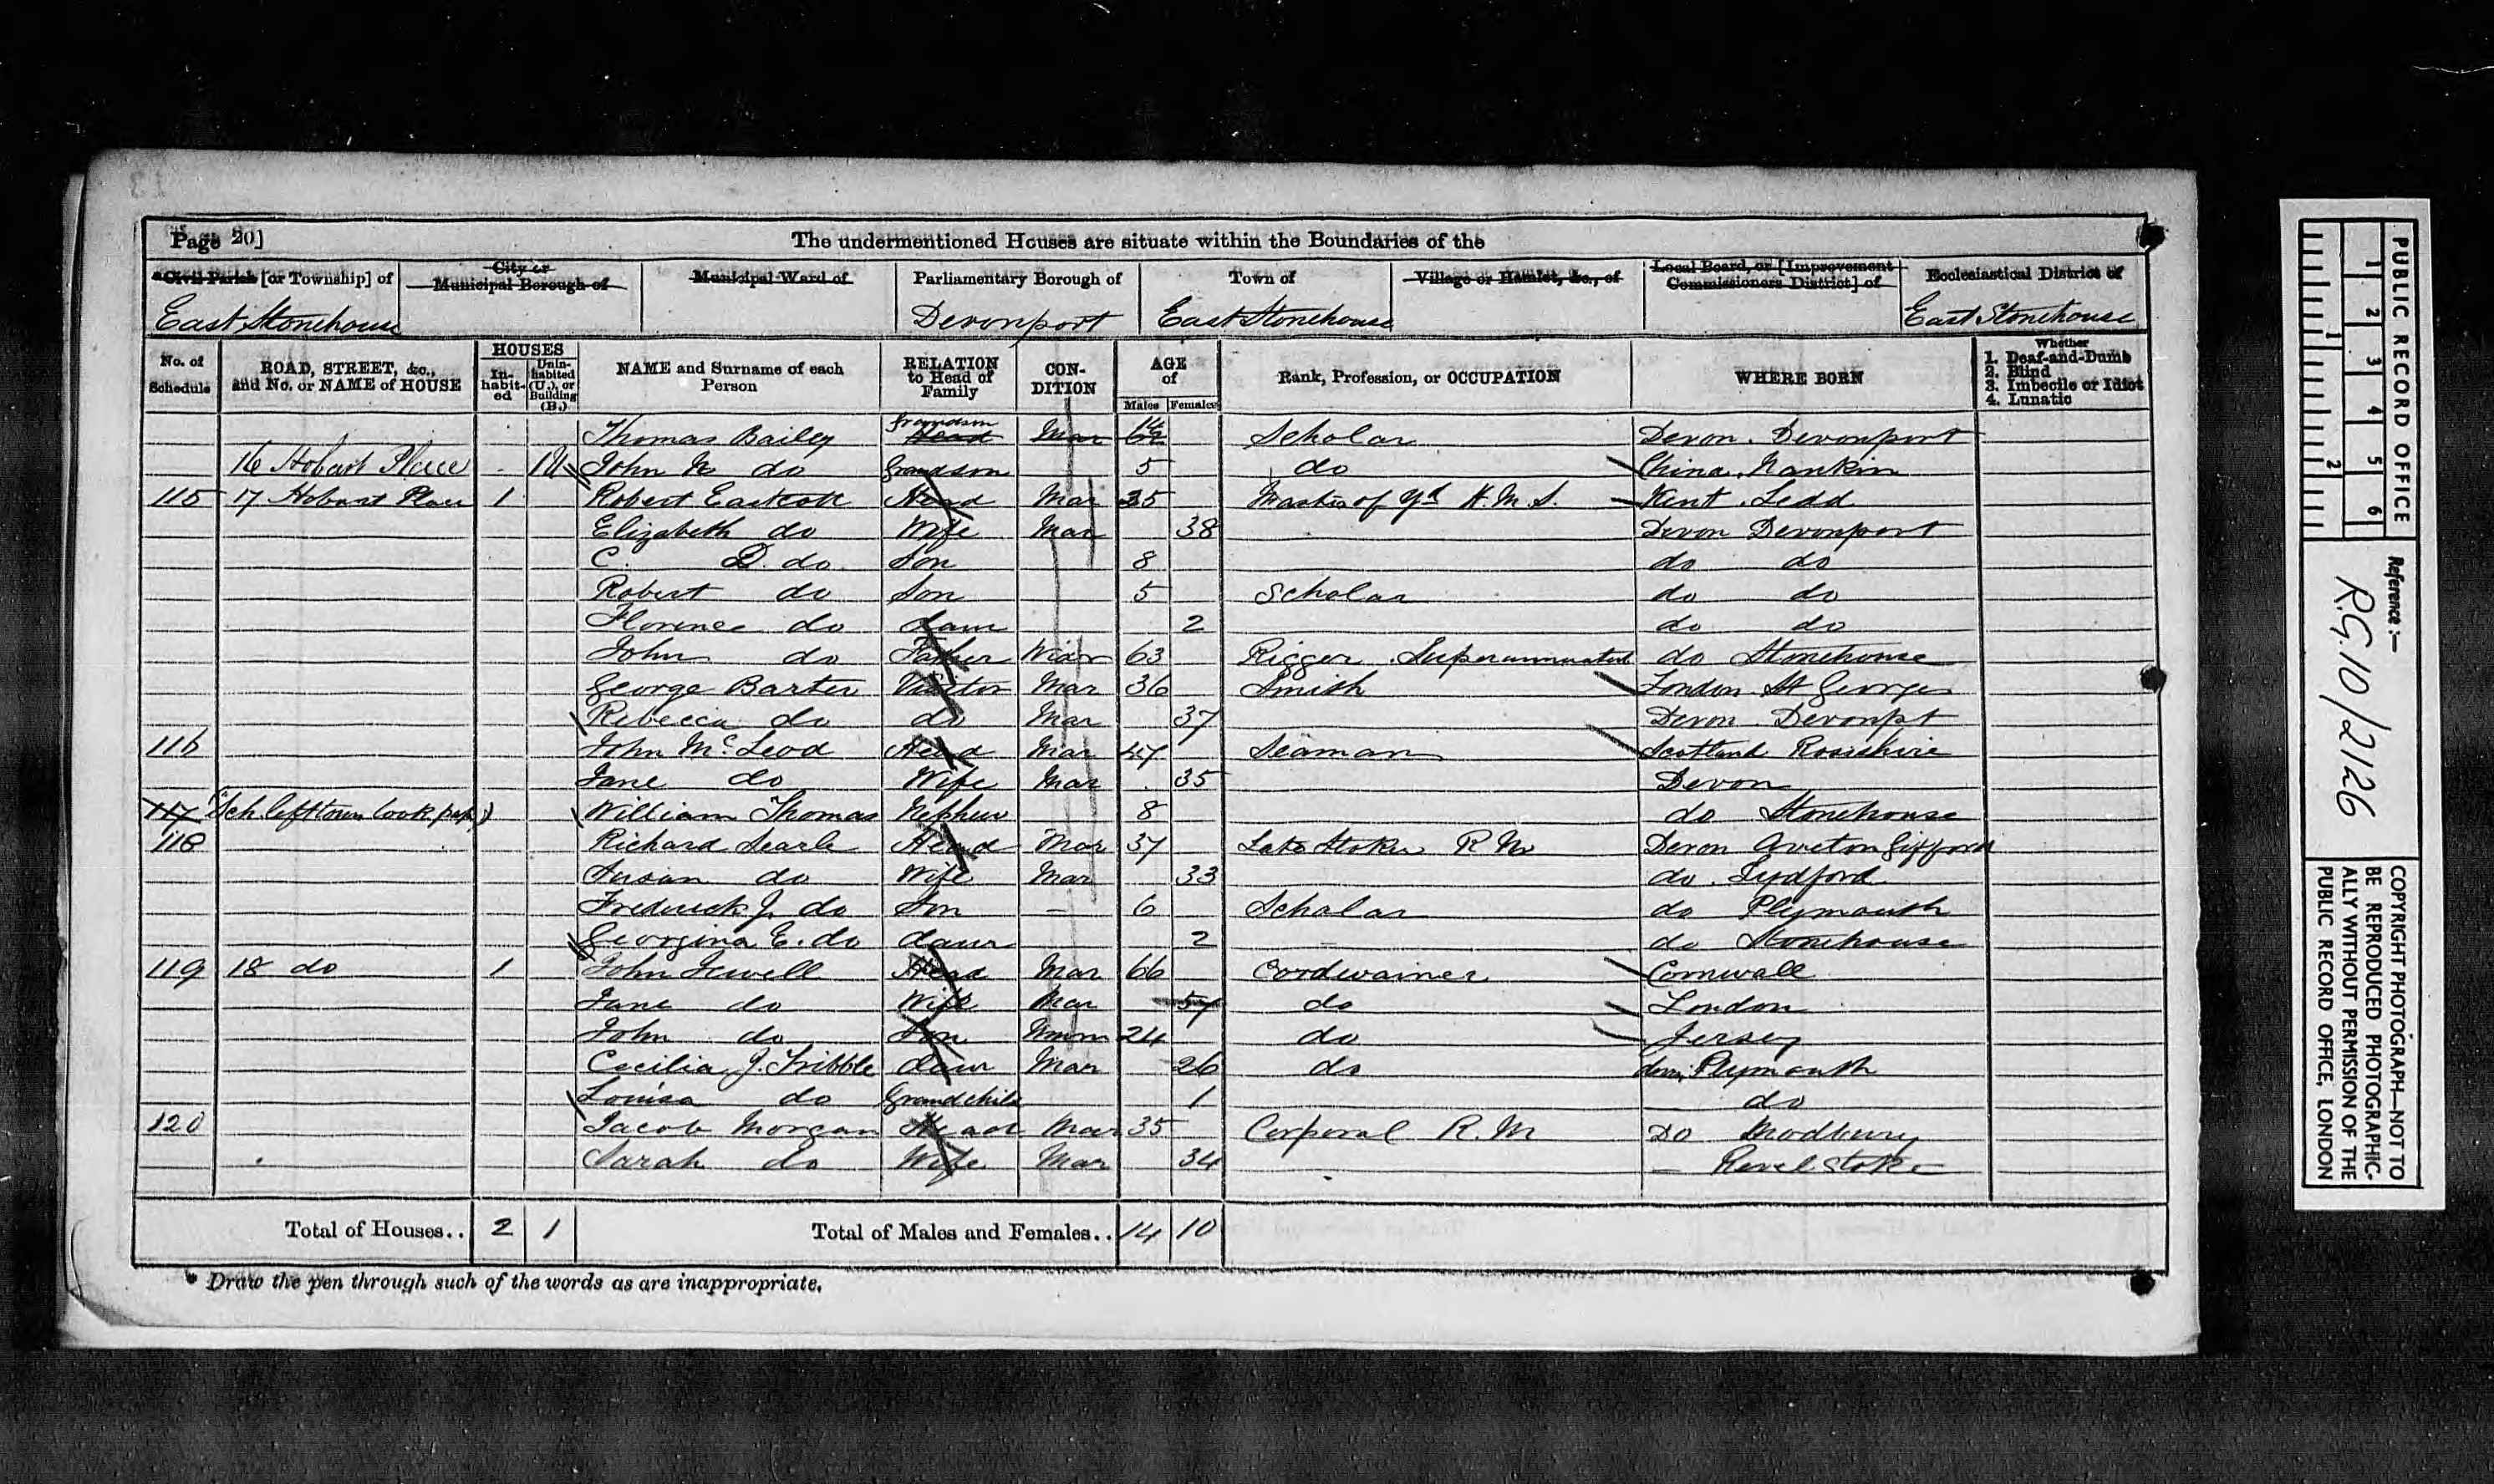 Page 20]
The undermentioned Houses are situate within the Boundaries of the
Civil Parish [or Township] of
City or Municipal Borough of
Municipal Ward of
Parliamentary Borough of
Town of
Village or Hamlet, &c., of
Local Board, or [Improvement Commissioners District] of
Ecclesiastical District of
East Stonehouse
Devonport
East Stonehouse
East Stonehouse
No. of Schedule
ROAD, STREET, &c., and No. or NAME of HOUSE
HOUSES
In-habit-ed
Unin-habited (U.), or Building (B.)
NAME and Surname of each Person
RELATION to Head of Family
CON-DITION
AGE of
Males Females
Rank, Profession, or OCCUPATION
WHERE BORN
Whether
1. Deaf-and-Dumb
2. Blind
3. Imbecile or Idiot
4. Lunatic
Thomas Bailey Grandson Head Mar Scholar Devon Devonport
16 Hobart Place 1U John N do Grandson 5 do China, Nankin
115 17 Hobart Place 1 Robert Eastcott Head Mar 35 Master of H.M.S. Kent
Elizabeth do Wife Mar 38 Devon Devonport
C. D. do Son 8 do do
Robert do Son 5 Scholar do do
Florence do Daur 2 do do
John do Father Widr 63 Rigger Superannuated do Stonehouse
George Barter Visitor Mar 36 Smith London St Georges
Rebecca do do Mar 37 Devon Devonpt
116 John McLeod Head Mar 47 Seaman Scotland Rossshire
Jane do Wife Mar 35 Devon
117 (Sch. left town took pap.) William Thomas Nephew 8 do Stonehouse
118 Richard Searle Head Mar 37 Late Stoker R N Devon Aveton Gifford
Susan do Wife Mar 33 do Lydford
Frederick J. do Son – 6 Scholar do Plymouth
Georgina E. do daur 2 do Stonehouse
119 18 do 1 John Jewell Head Mar 66 Cordwainer Cornwall
Jane do Wife Mar 57 do London
John do Son Unm 24 do Jersey
Cecilia J. Tribble daur Mar 26 do Devon Plymouth
Louisa do Grandchild 1 do
120 Jacob Morgan Head Mar 35 Corporal R.M Do Modbury
Sarah do Wife Mar 34 – Revelstoke
Total of Houses.. 2 1
Total of Males and Females.. 14 10
* Draw the pen through such of the words as are inappropriate.
PUBLIC RECORD OFFICE
1 2 3 4 5 6
1 2
Reference:—
R.G. 10/2126
COPYRIGHT PHOTOGRAPH—NOT TO BE REPRODUCED PHOTOGRAPHIC-ALLY WITHOUT PERMISSION OF THE PUBLIC RECORD OFFICE, LONDON